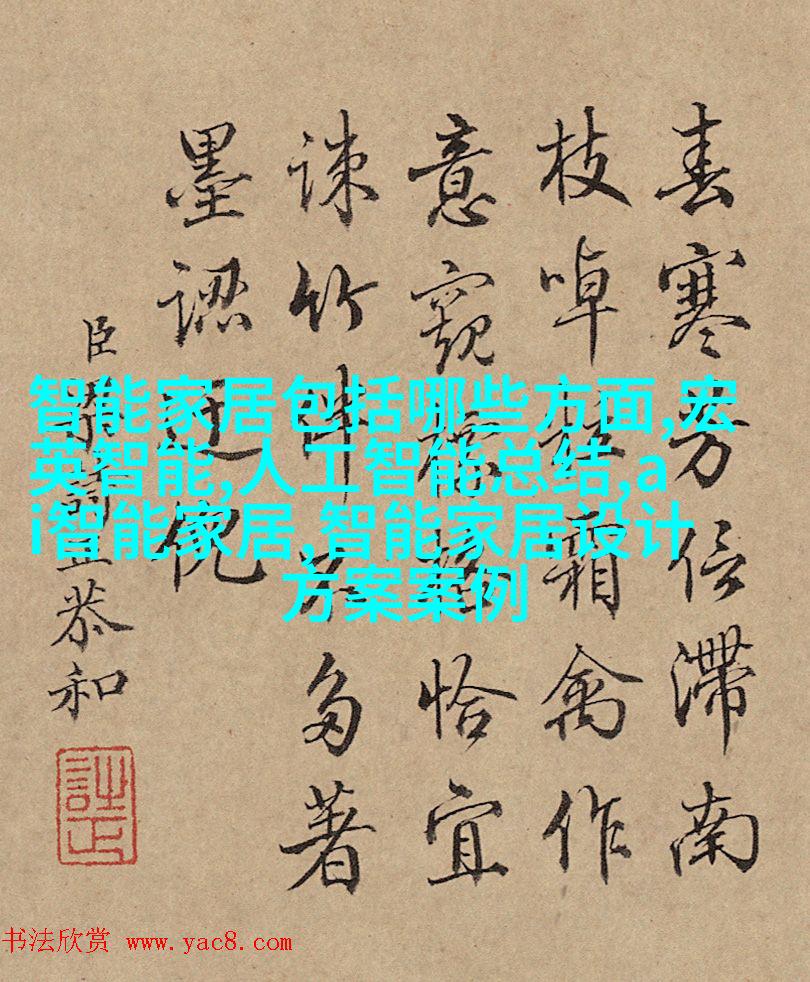 春寒芳信滞南
枝啅霜禽作
意窥恰宜
竹伴多著
墨倪
臣恭和
智能家居包括哪些方面,宏
英智能,人工智能总结,a
i智能家居,智能家居设计
方案案例
书法欣赏 www.yac8.com